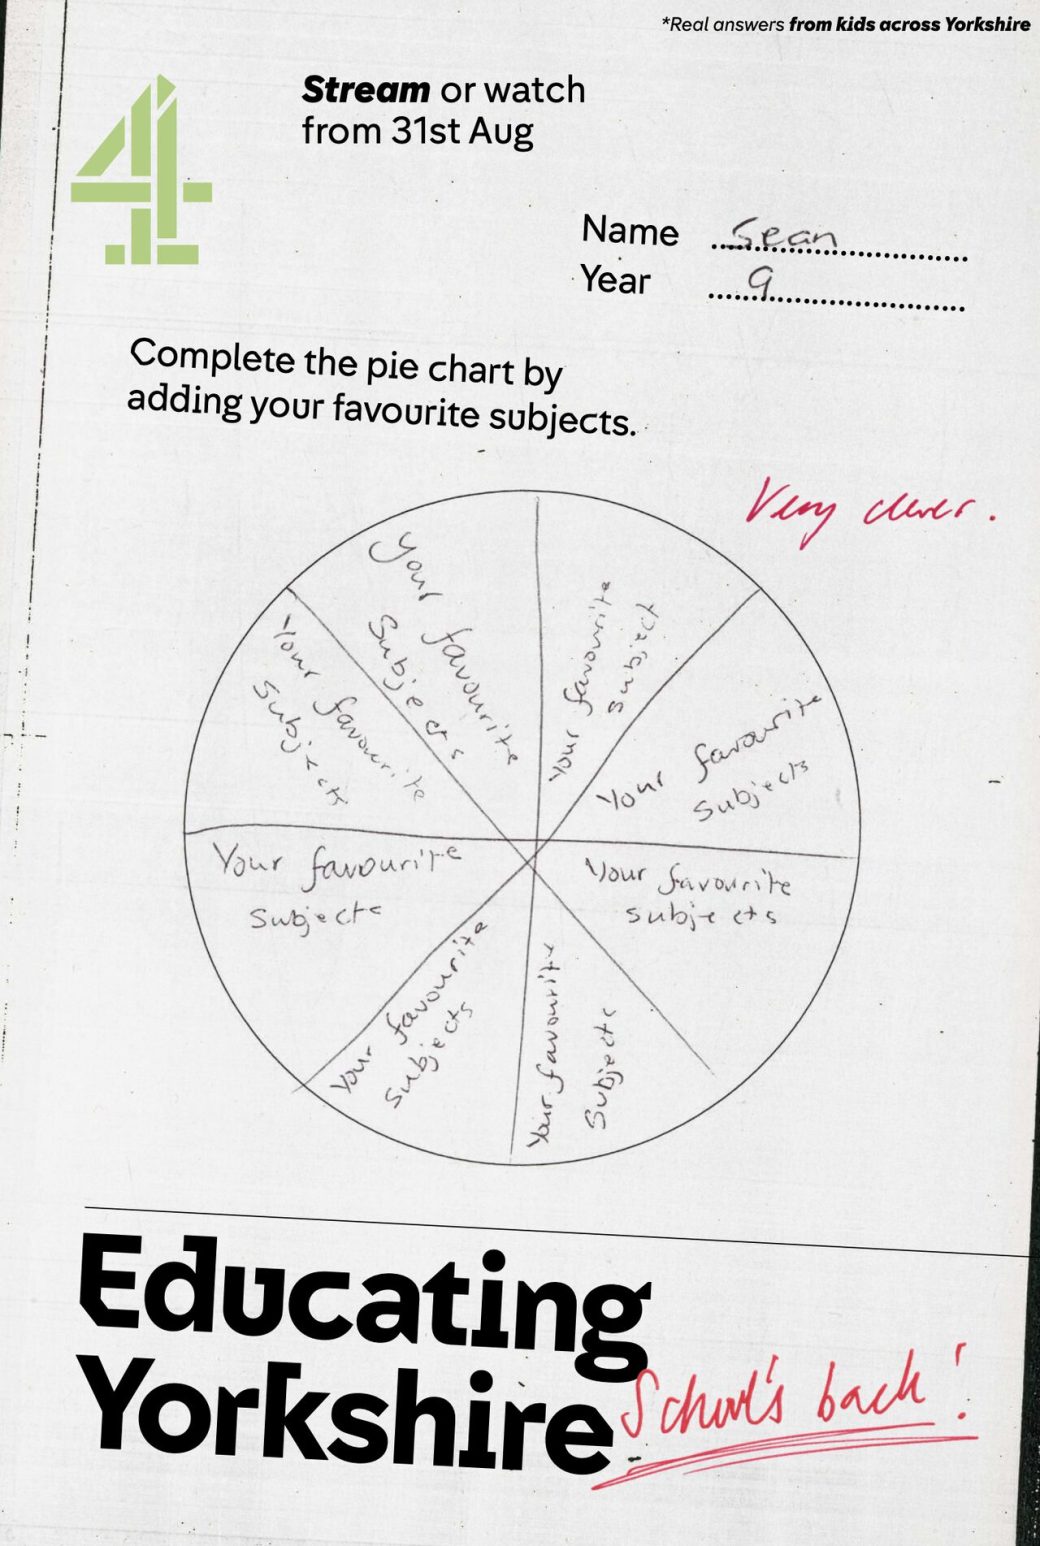 *Real answers from kids across Yorkshire
4
Stream or watch
from 31st Aug
Name Sean
Year 9
Complete the pie chart by
adding your favourite subjects.
Very clever.
Your favourite
subjects
Your favourite
subject
Your favourite
subjects
Your favourite
subjects
Your favourite
subjects
Your favourite
subjects
Your favourite
subjects
Your favourite
subjects
Educating
Yorkshire
School's back!